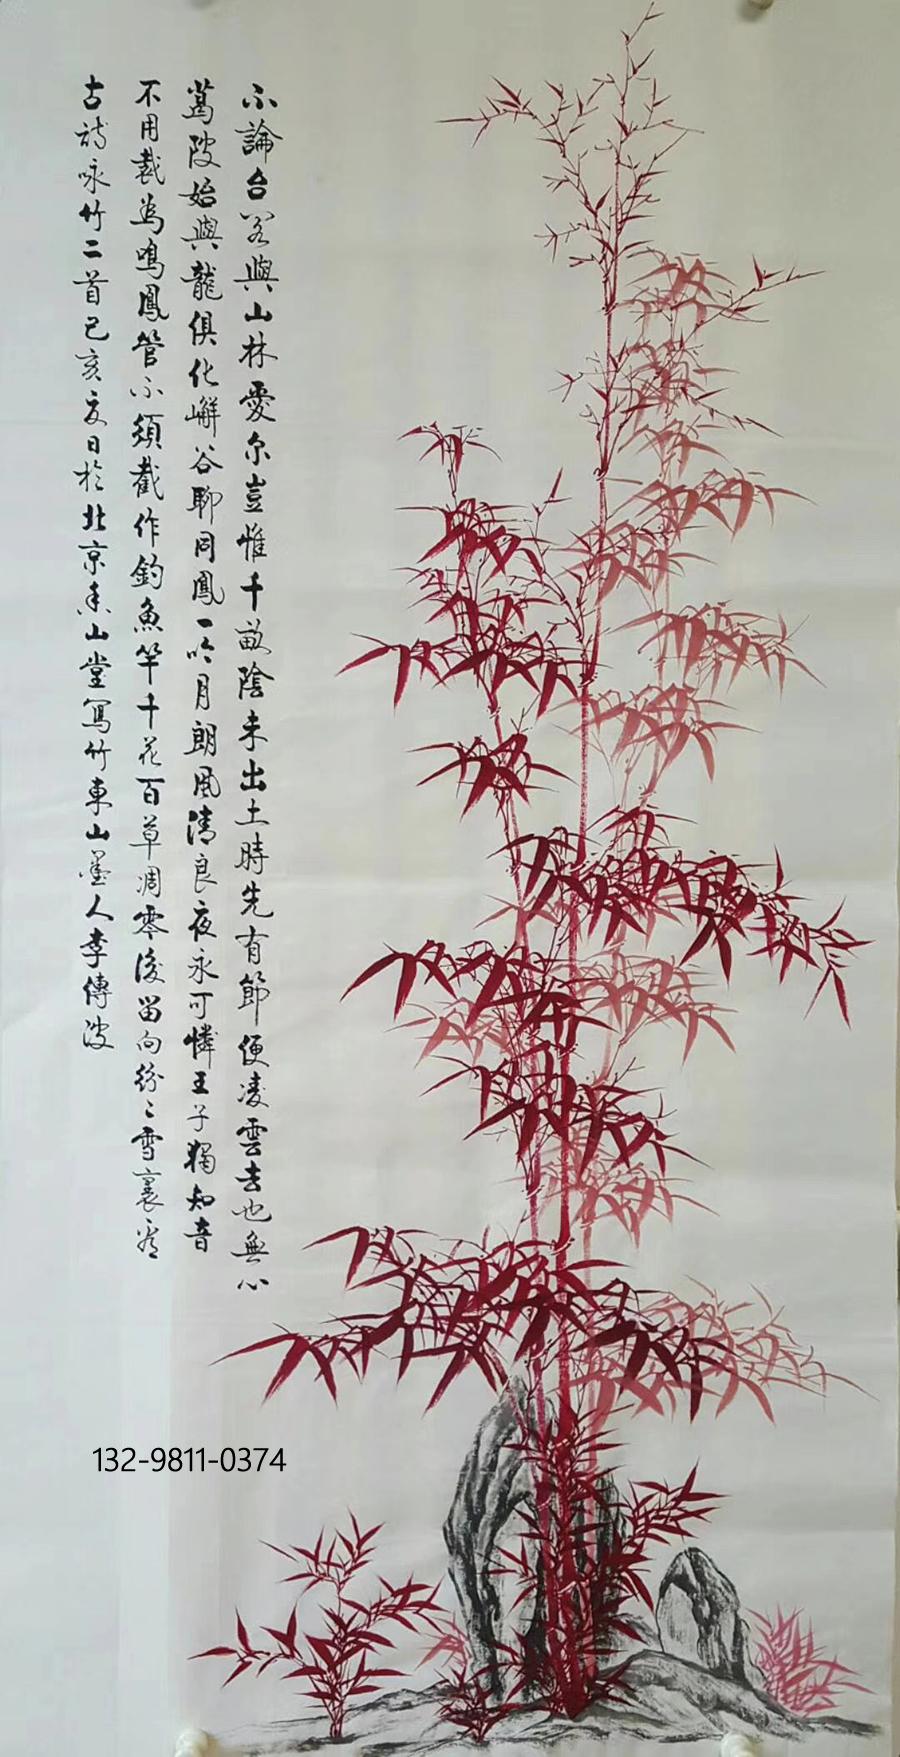 不論台閣與山林愛尔豈惟千畝陰未出土時先有節便凌雲去也無心
葛陂始與龍俱化嶰谷聊同鳳一吟月朗風清良夜永可憐王子獨知音
不用裁為鳴鳳管不須截作釣魚竿千花百草凋零後留向紛〻雪裏看
古詩咏竹二首己亥夏日於北京香山堂寫竹東山墨人李傳波
132-9811-0374